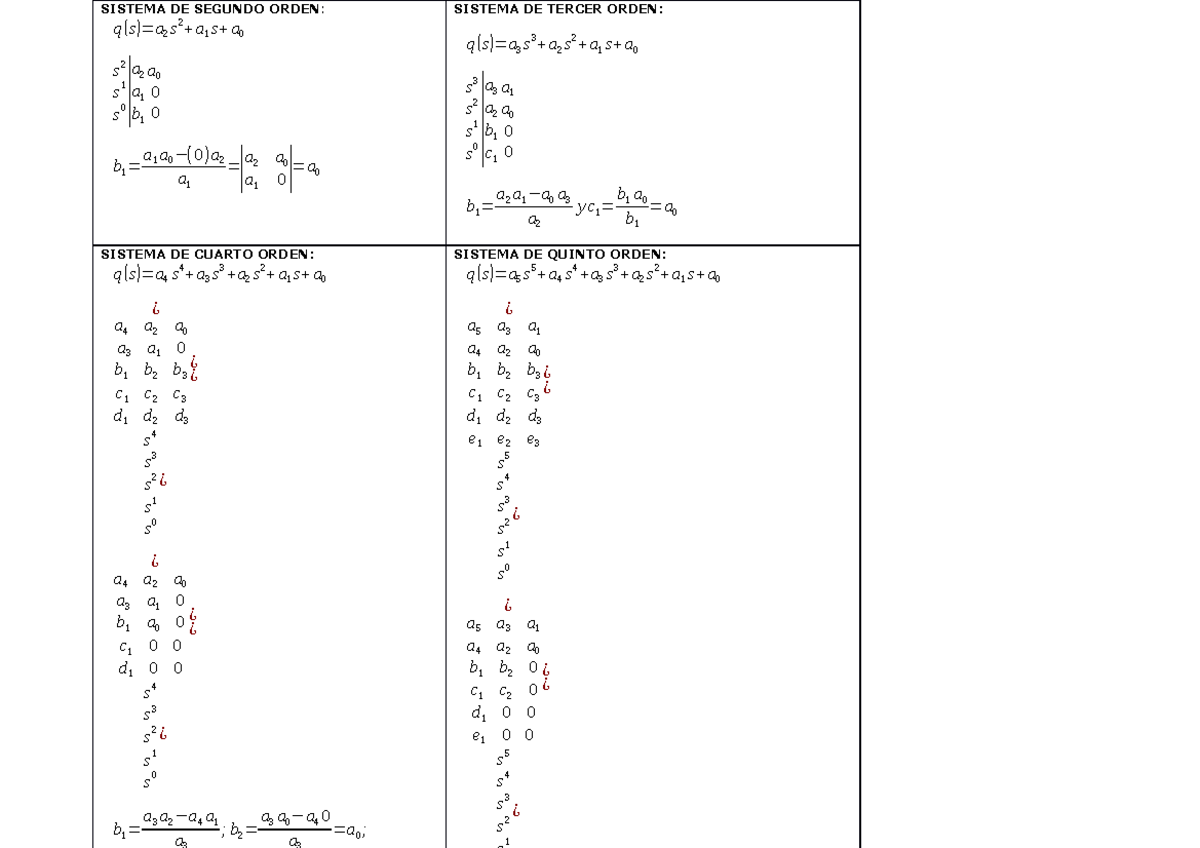 SISTEMA DE SEGUNDO ORDEN:
q(s)=a₂s²+a₁s+a₀
s²|a₂ a₀
s¹|a₁ 0
s⁰|b₁ 0
b₁=(a₁a₀−(0)a₂)/a₁=|a₂ a₀; a₁ 0|=a₀
SISTEMA DE TERCER ORDEN:
q(s)=a₃s³+a₂s²+a₁s+a₀
s³|a₃ a₁
s²|a₂ a₀
s¹|b₁ 0
s⁰|c₁ 0
b₁=(a₂a₁−a₀a₃)/a₂ y c₁=(b₁a₀)/b₁=a₀
SISTEMA DE CUARTO ORDEN:
q(s)=a₄s⁴+a₃s³+a₂s²+a₁s+a₀
¿
a₄ a₂ a₀
a₃ a₁ 0
¿
b₁ b₂ b₃¿
c₁ c₂ c₃
d₁ d₂ d₃
s⁴
s³
s²¿
s¹
s⁰
¿
a₄ a₂ a₀
a₃ a₁ 0
¿
b₁ a₀ 0¿
c₁ 0 0
d₁ 0 0
s⁴
s³
s²¿
s¹
s⁰
b₁=(a₃a₂−a₄a₁)/a₃; b₂=(a₃a₀−a₄0)/a₃=a₀;
SISTEMA DE QUINTO ORDEN:
q(s)=a₅s⁵+a₄s⁴+a₃s³+a₂s²+a₁s+a₀
¿
a₅ a₃ a₁
a₄ a₂ a₀
b₁ b₂ b₃¿
c₁ c₂ c₃¿
d₁ d₂ d₃
e₁ e₂ e₃
s⁵
s⁴
s³
¿
s²
s¹
s⁰
¿
a₅ a₃ a₁
a₄ a₂ a₀
b₁ b₂ 0¿
c₁ c₂ 0¿
d₁ 0 0
e₁ 0 0
s⁵
s⁴
s³
¿
s²
s¹